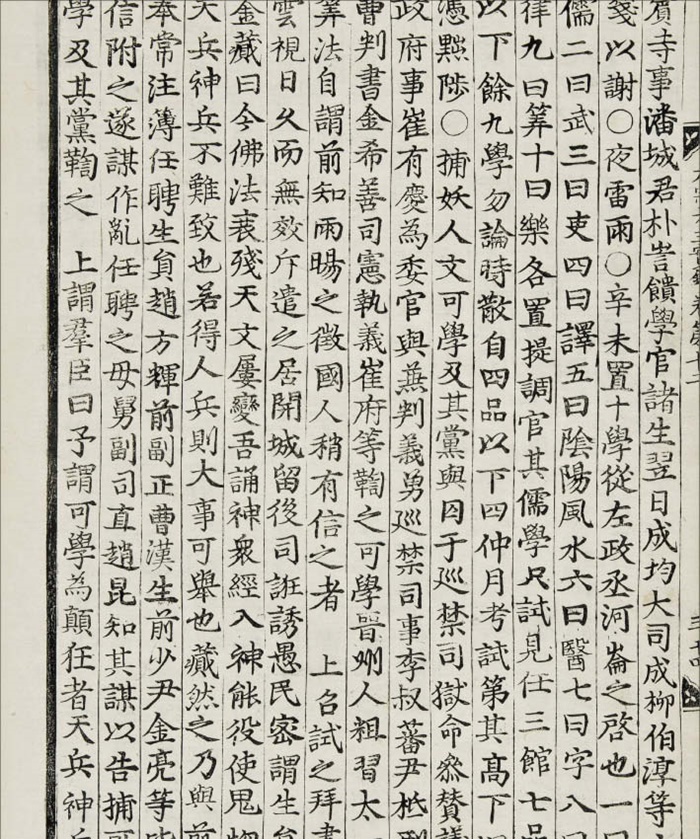 賓寺事潘城君朴訔饋學官諸生翌日成均大司成柳伯淳等
箋以謝○夜雷雨○辛未置十學從左政丞河崙之啓也一曰
儒二曰武三曰吏四曰譯五曰陰陽風水六曰醫七曰字八曰
律九曰筭十曰樂各置提調官其儒學只試見任三館七品
以下餘九學勿論時散自四品以下四仲月考試第其高下
憑黜陟○捕妖人文可學及其黨與囚于巡禁司獄命叅贊議
政府事崔有慶為委官與兼判義勇巡禁司事李叔蕃尹柢刑
曹判書金希善司憲執義崔府等鞫之可學晉州人粗習太
筭法自謂前知雨暘之徵國人稍有信之者　上召試之拜書
雲視日久而無效斥遣之居開城留後司誑誘愚民密謂生員
金藏曰今佛法衰殘天文屢變吾誦神衆經入神能役使鬼物
天兵神兵不難致也若得人兵則大事可舉也藏然之乃與前
奉常注簿任聘生員趙方輝前副正曹漢生前少尹金亮等皆
信附之遂謀作亂任聘之母舅副司直趙昆知其謀以告捕可
學及其黨鞫之　上謂羣臣曰予謂可學為顛狂者天兵神兵